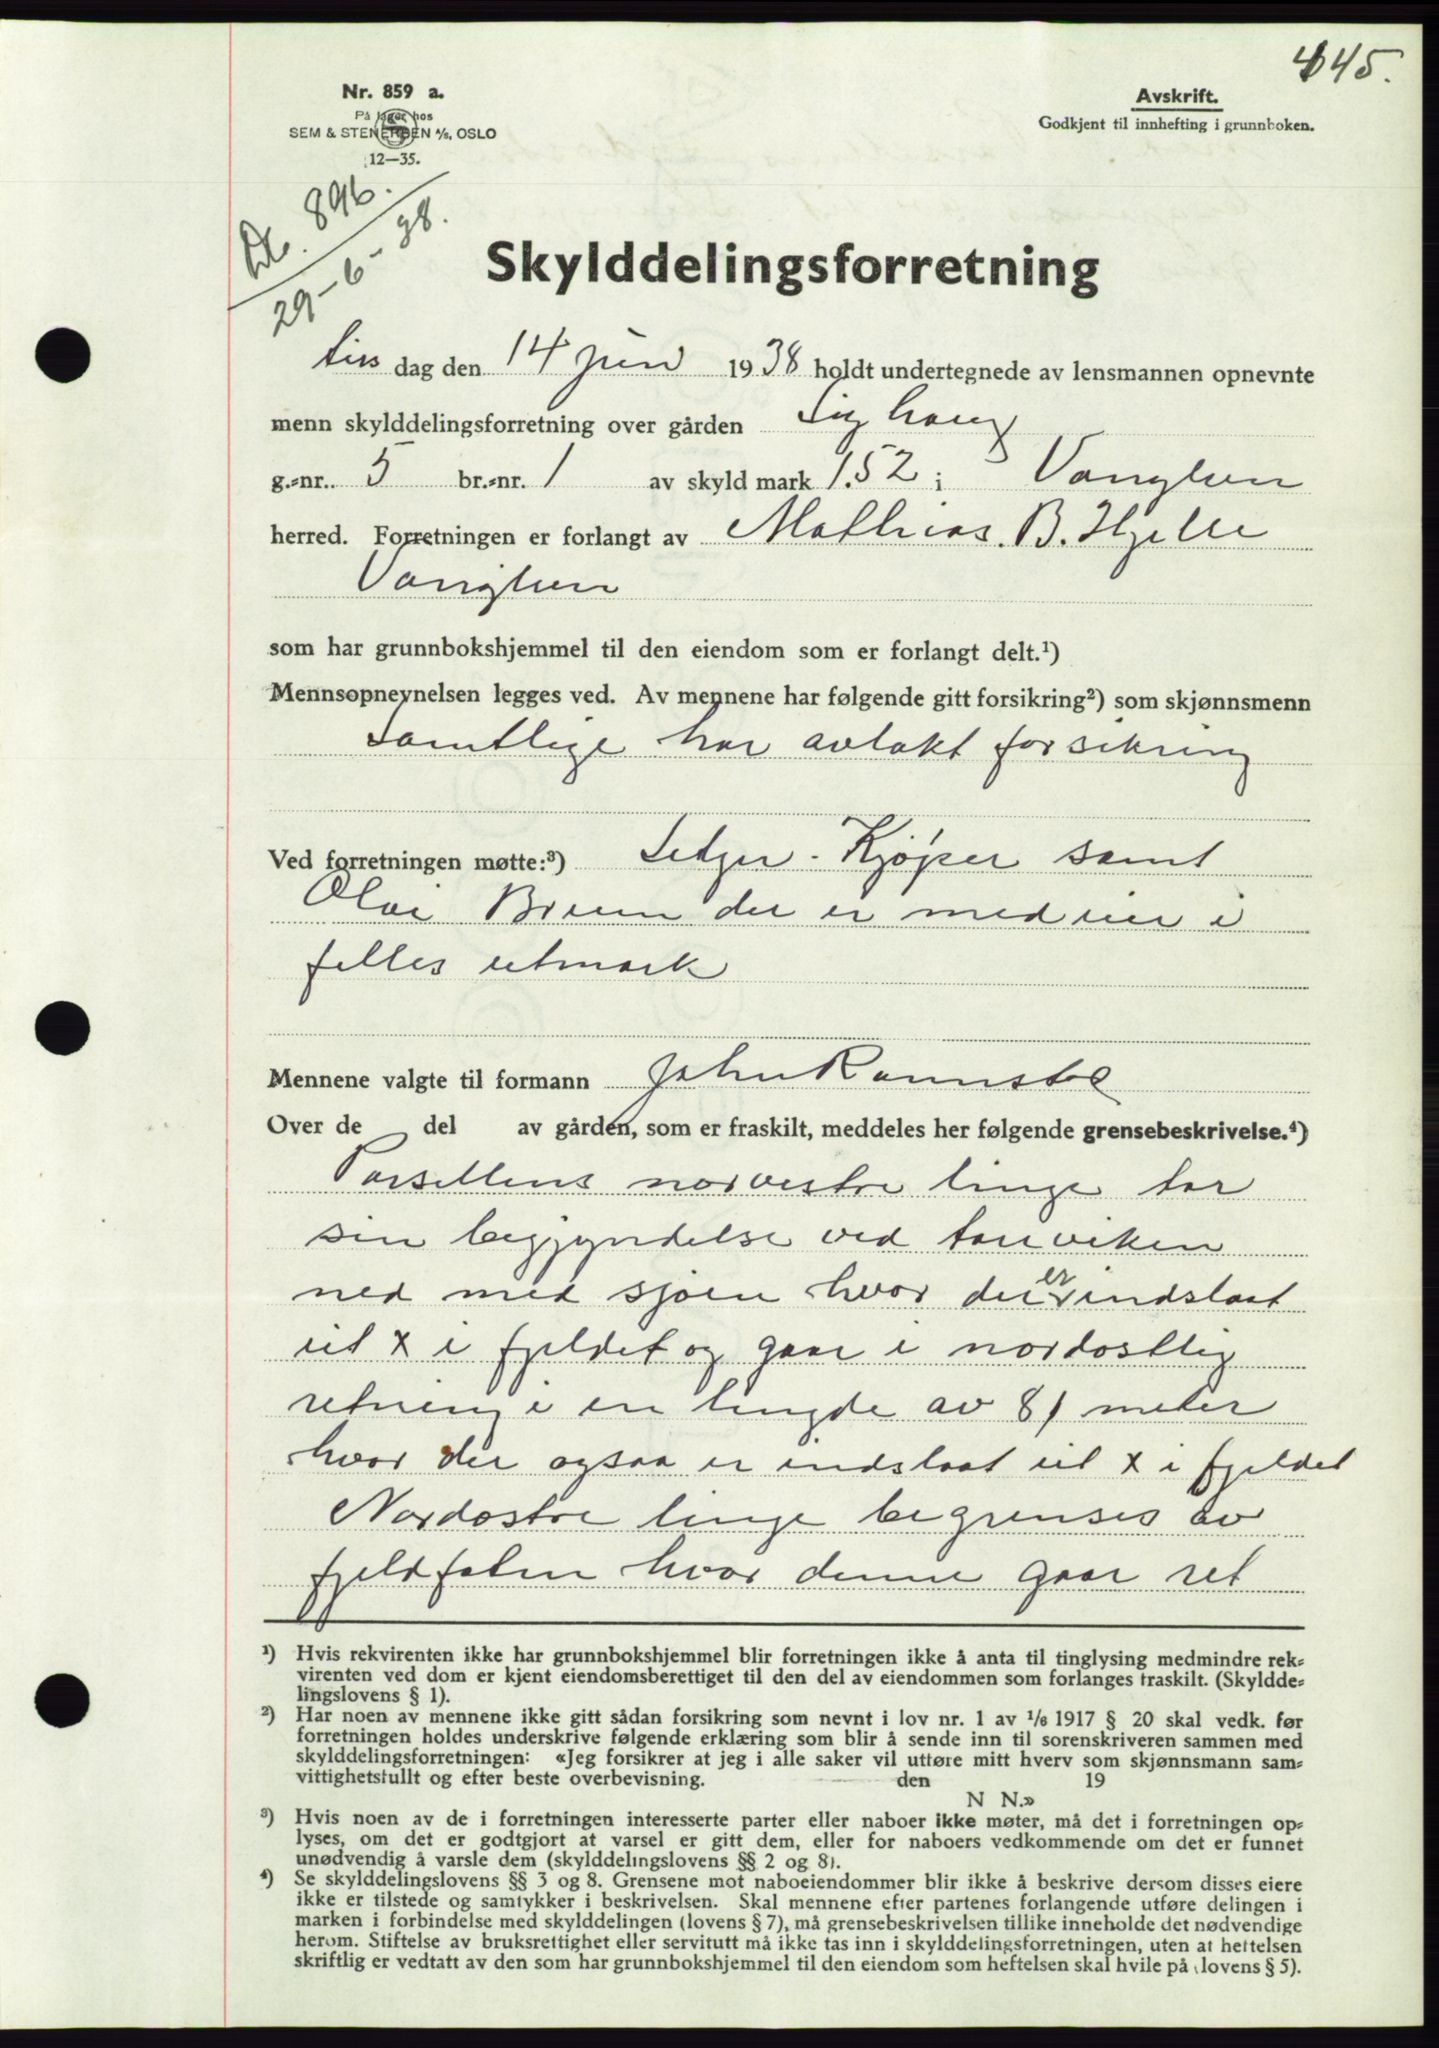 445.
Nr. 859 a.
På lager hos
SEM & STENERSEN A/S, OSLO
12—35.
Avskrift.
Godkjent til innhefting i grunnboken.
896.
29-6-38.
Skylddelingsforretning
Tirs dag den 14 juni 1938 holdt undertegnede av lensmannen opnevnte
menn skylddelingsforretning over gården
g.=nr. 5 br.=nr. 1 av skyld mark 1.52 i Vanylven
herred. Forretningen er forlangt av Mathias. B. Hjelle
Vanylven
som har grunnbokshjemmel til den eiendom som er forlangt delt.¹)
Mennsopnevnelsen legges ved. Av mennene har følgende gitt forsikring²) som skjønnsmenn
Samtlige har avlakt forsikring
Ved forretningen møtte:³) Selger - Kjøper samt
Olai Bruun der er medeier i
felles utmark
Mennene valgte til formann John Rønnstad
Over de del av gården, som er fraskilt, meddeles her følgende grensebeskrivelse.⁴)
Parsellens norvestre linge tar
sin begjyndelse ved tarviken
ned med sjøen hvor der er indslaat
eit x i fjeldet og gaar i nordostlig
retning i en lengde av 81 meter
hvor der ogsaa er indslaat eit x i fjeldet
Nordostre linge begrenses av
fjeldfoten hvor denne gaar ret
¹) Hvis rekvirenten ikke har grunnbokshjemmel blir forretningen ikke å anta til tinglysing medmindre rek=
virenten ved dom er kjent eiendomsberettiget til den del av eiendommen som forlanges fraskilt. (Skyldde=
lingslovens § 1).
²) Har noen av mennene ikke gitt sådan forsikring som nevnt i lov nr. 1 av 1/6 1917 § 20 skal vedk. før
forretningen holdes underskrive følgende erklæring som blir å sende inn til sorenskriveren sammen med
skylddelingsforretningen: «Jeg forsikrer at jeg i alle saker vil utføre mitt hverv som skjønnsmann sam=
vittighetsfullt og efter beste overbevisning. den 19
N N.»
³) Hvis noen av de i forretningen interesserte parter eller naboer ikke møter, må det i forretningen op=
lyses, om det er godtgjort at varsel er gitt dem, eller for naboers vedkommende om det er funnet
unødvendig å varsle dem (skylddelingslovens §§ 2 og 8).
⁴) Se skylddelingslovens §§ 3 og 8. Grensene mot naboeiendommer blir ikke å beskrive dersom disses eiere
ikke er tilstede og samtykker i beskrivelsen. Skal mennene efter partenes forlangende utføre delingen i
marken i forbindelse med skylddelingen (lovens § 7), må grensebeskrivelsen tillike inneholde det nødvendige
herom. Stiftelse av bruksrettighet eller servitutt må ikke tas inn i skylddelingsforretningen, uten at heftelsen
skriftlig er vedtatt av den som har grunnbokshjemmel til den eiendom som heftelsen skal hvile på (lovens § 5).